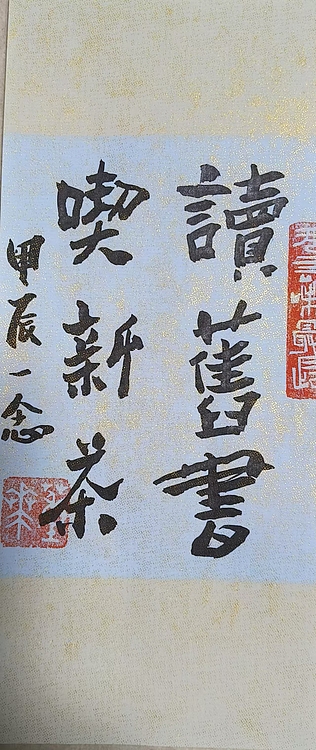 讀舊書
喫新茶
甲辰一念